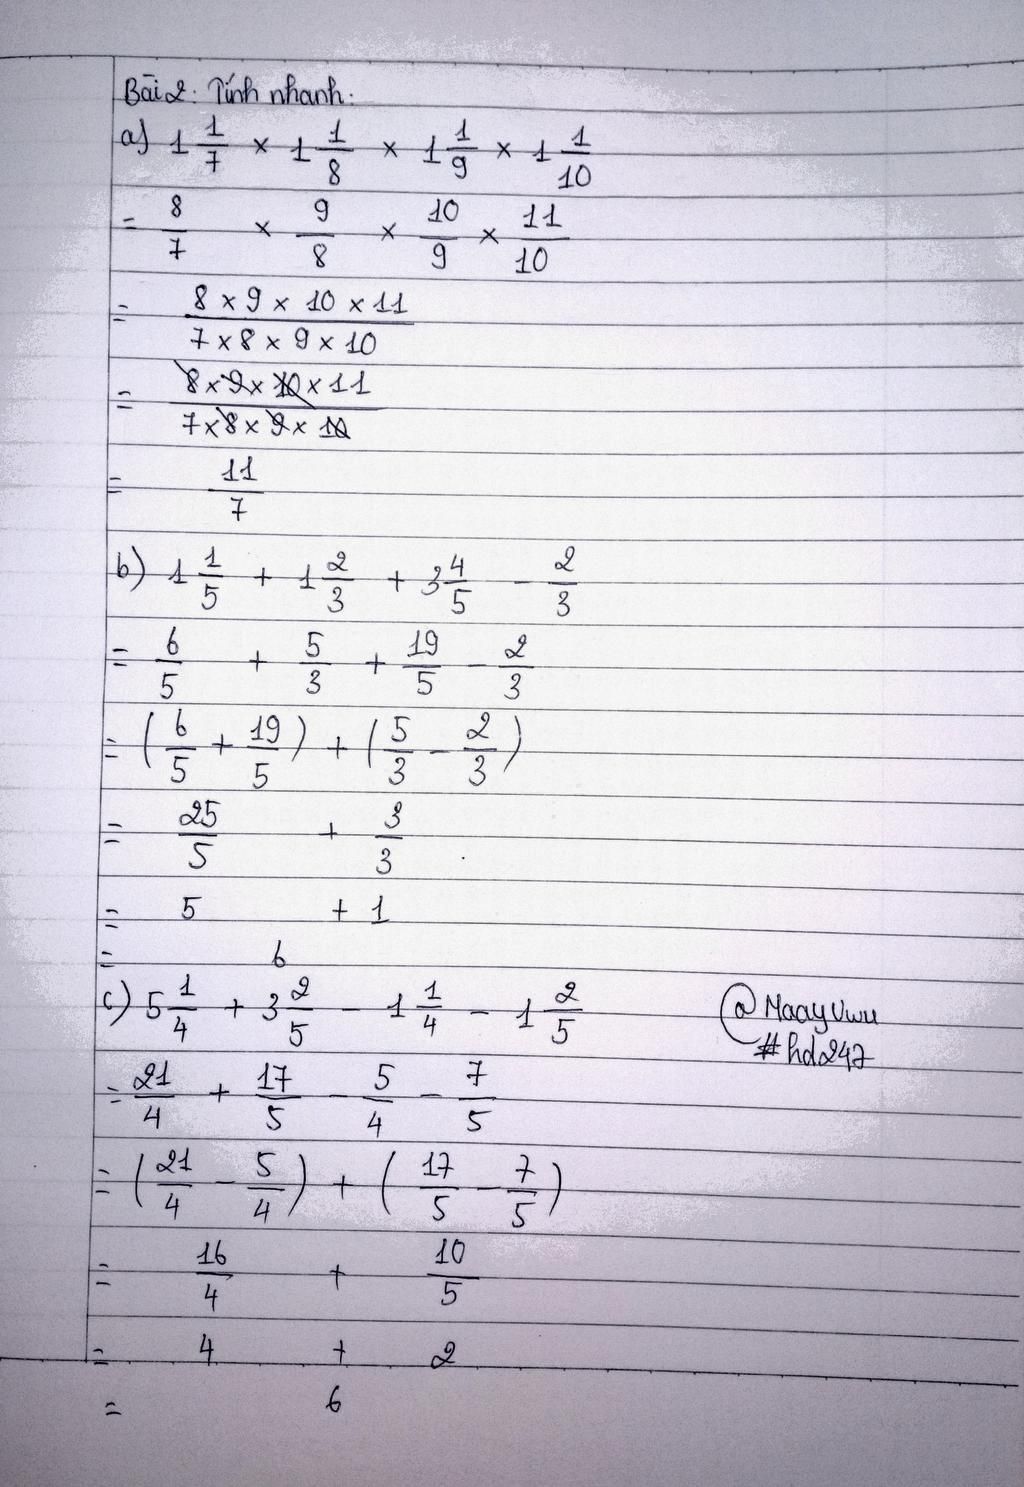 Bài 2: Tính nhanh:
a) 1 1/7 × 1 1/8 × 1 1/9 × 1 1/10
= 8/7 × 9/8 × 10/9 × 11/10
= 8 × 9 × 10 × 11 / 7 × 8 × 9 × 10
= 8 × 9 × 10 × 11 / 7 × 8 × 9 × 10
= 11/7
b) 1 1/5 + 1 2/3 + 3 4/5 - 2/3
= 6/5 + 5/3 + 19/5 - 2/3
= (6/5 + 19/5) + (5/3 - 2/3)
= 25/5 + 3/3
= 5 + 1
= 6
c) 5 1/4 + 3 2/5 - 1 1/4 - 1 2/5
@MaayUwu
#hd247
= 21/4 + 17/5 - 5/4 - 7/5
= (21/4 - 5/4) + (17/5 - 7/5)
= 16/4 + 10/5
= 4 + 2
= 6